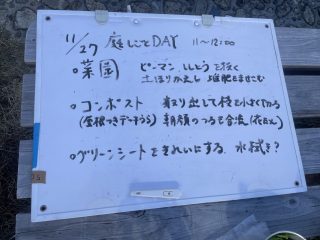 11/27 庭しごとDAY 11〜12:00
○菜園 ピーマン、ししとうを抜く
土ほりかえし 堆肥をまぜこむ
○コンポスト 取り出して枝を小さく
(屋根つきデーチうら) 朝顔のつると合流
○グリーンシートをきれいにする 水拭き?